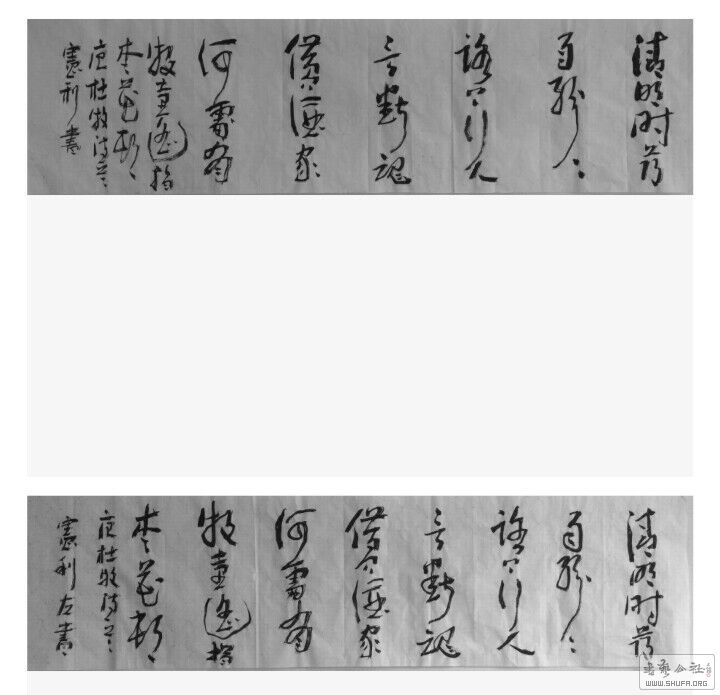 清明时节
雨纷纷
路上行人
欲断魂
借问酒家
何处有
牧童遥指
杏花村
唐杜牧诗
憲利書
清明时节
雨纷纷
路上行人
欲断魂
借问酒家
何处有
牧童遥指
杏花村
唐杜牧诗
憲利左書
书艺公社
WWW.SHUFA.ORG